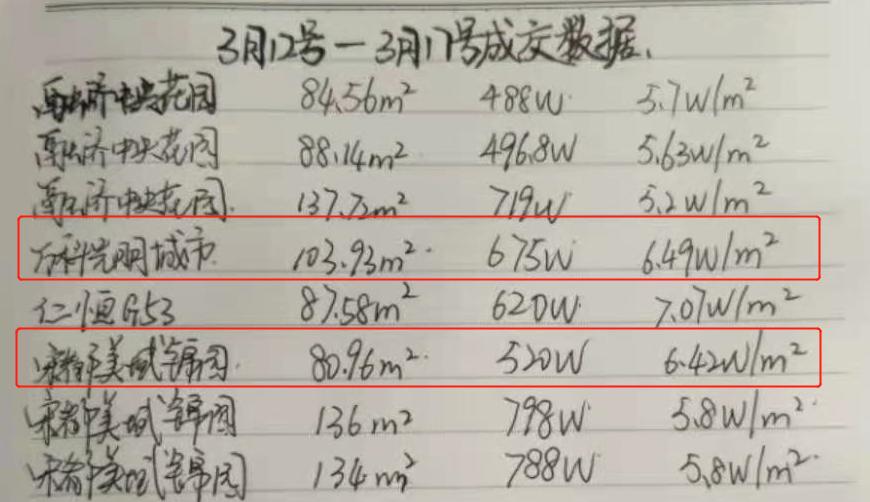 3月12号—3月17号成交数据.
高运济中央花园 84.56m² 488W 5.7W/m²
高运济中央花园 88.14m² 496.8W 5.63W/m²
高运济中央花园 137.72m² 719W 5.2W/m²
万科光明城市 103.93m² 675W 6.49W/m²
仁恒G53 87.58m² 620W 7.07W/m²
宋都美域锦园 80.96m² 520W 6.42W/m²
宋都美域锦园 136m² 798W 5.8W/m²
宋都美域锦园 134m² 788W 5.8W/m²